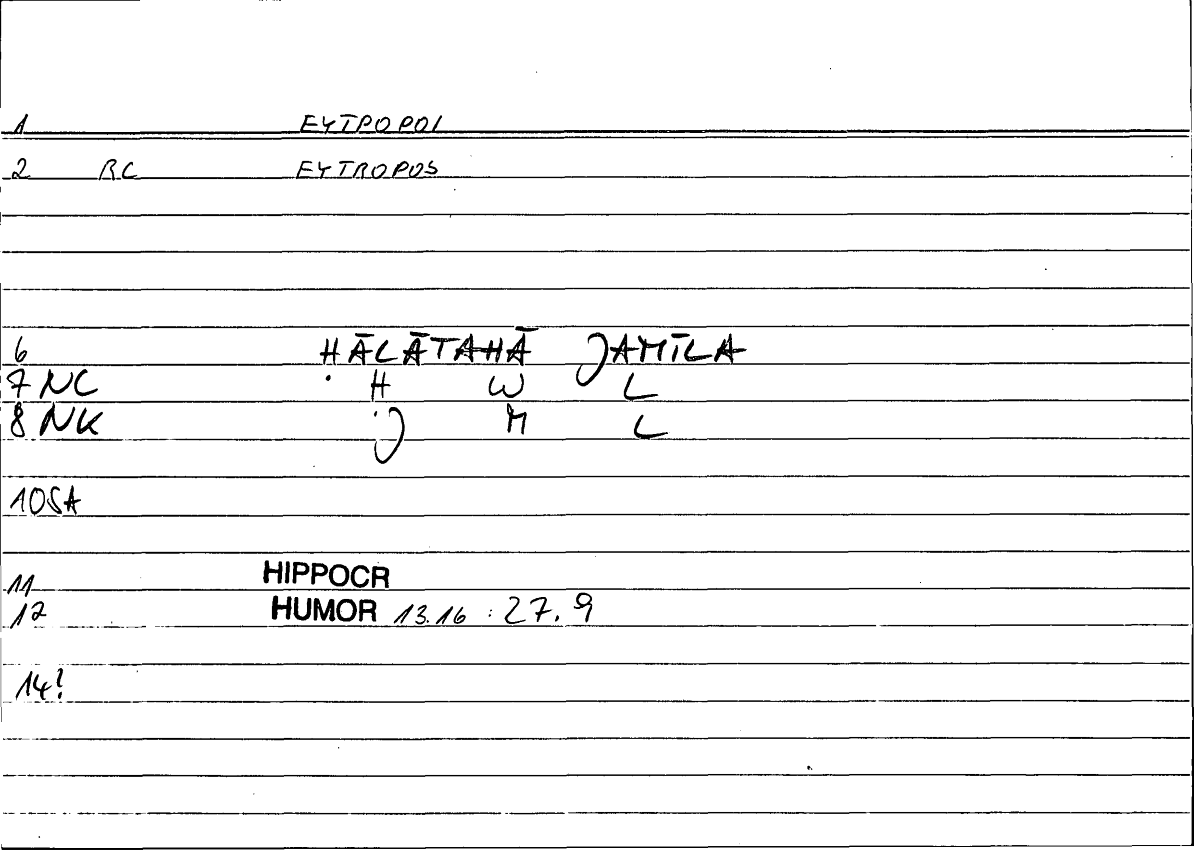 1 EYTPOPOI
2 RC EYTROPOS
6 ḤĀLĀTAHĀ JAMĪLA
7 NC Ḥ W L
8 NK J M L
10 SA
11 HIPPOCR
12 HUMOR 13.16 : 27.9
14!